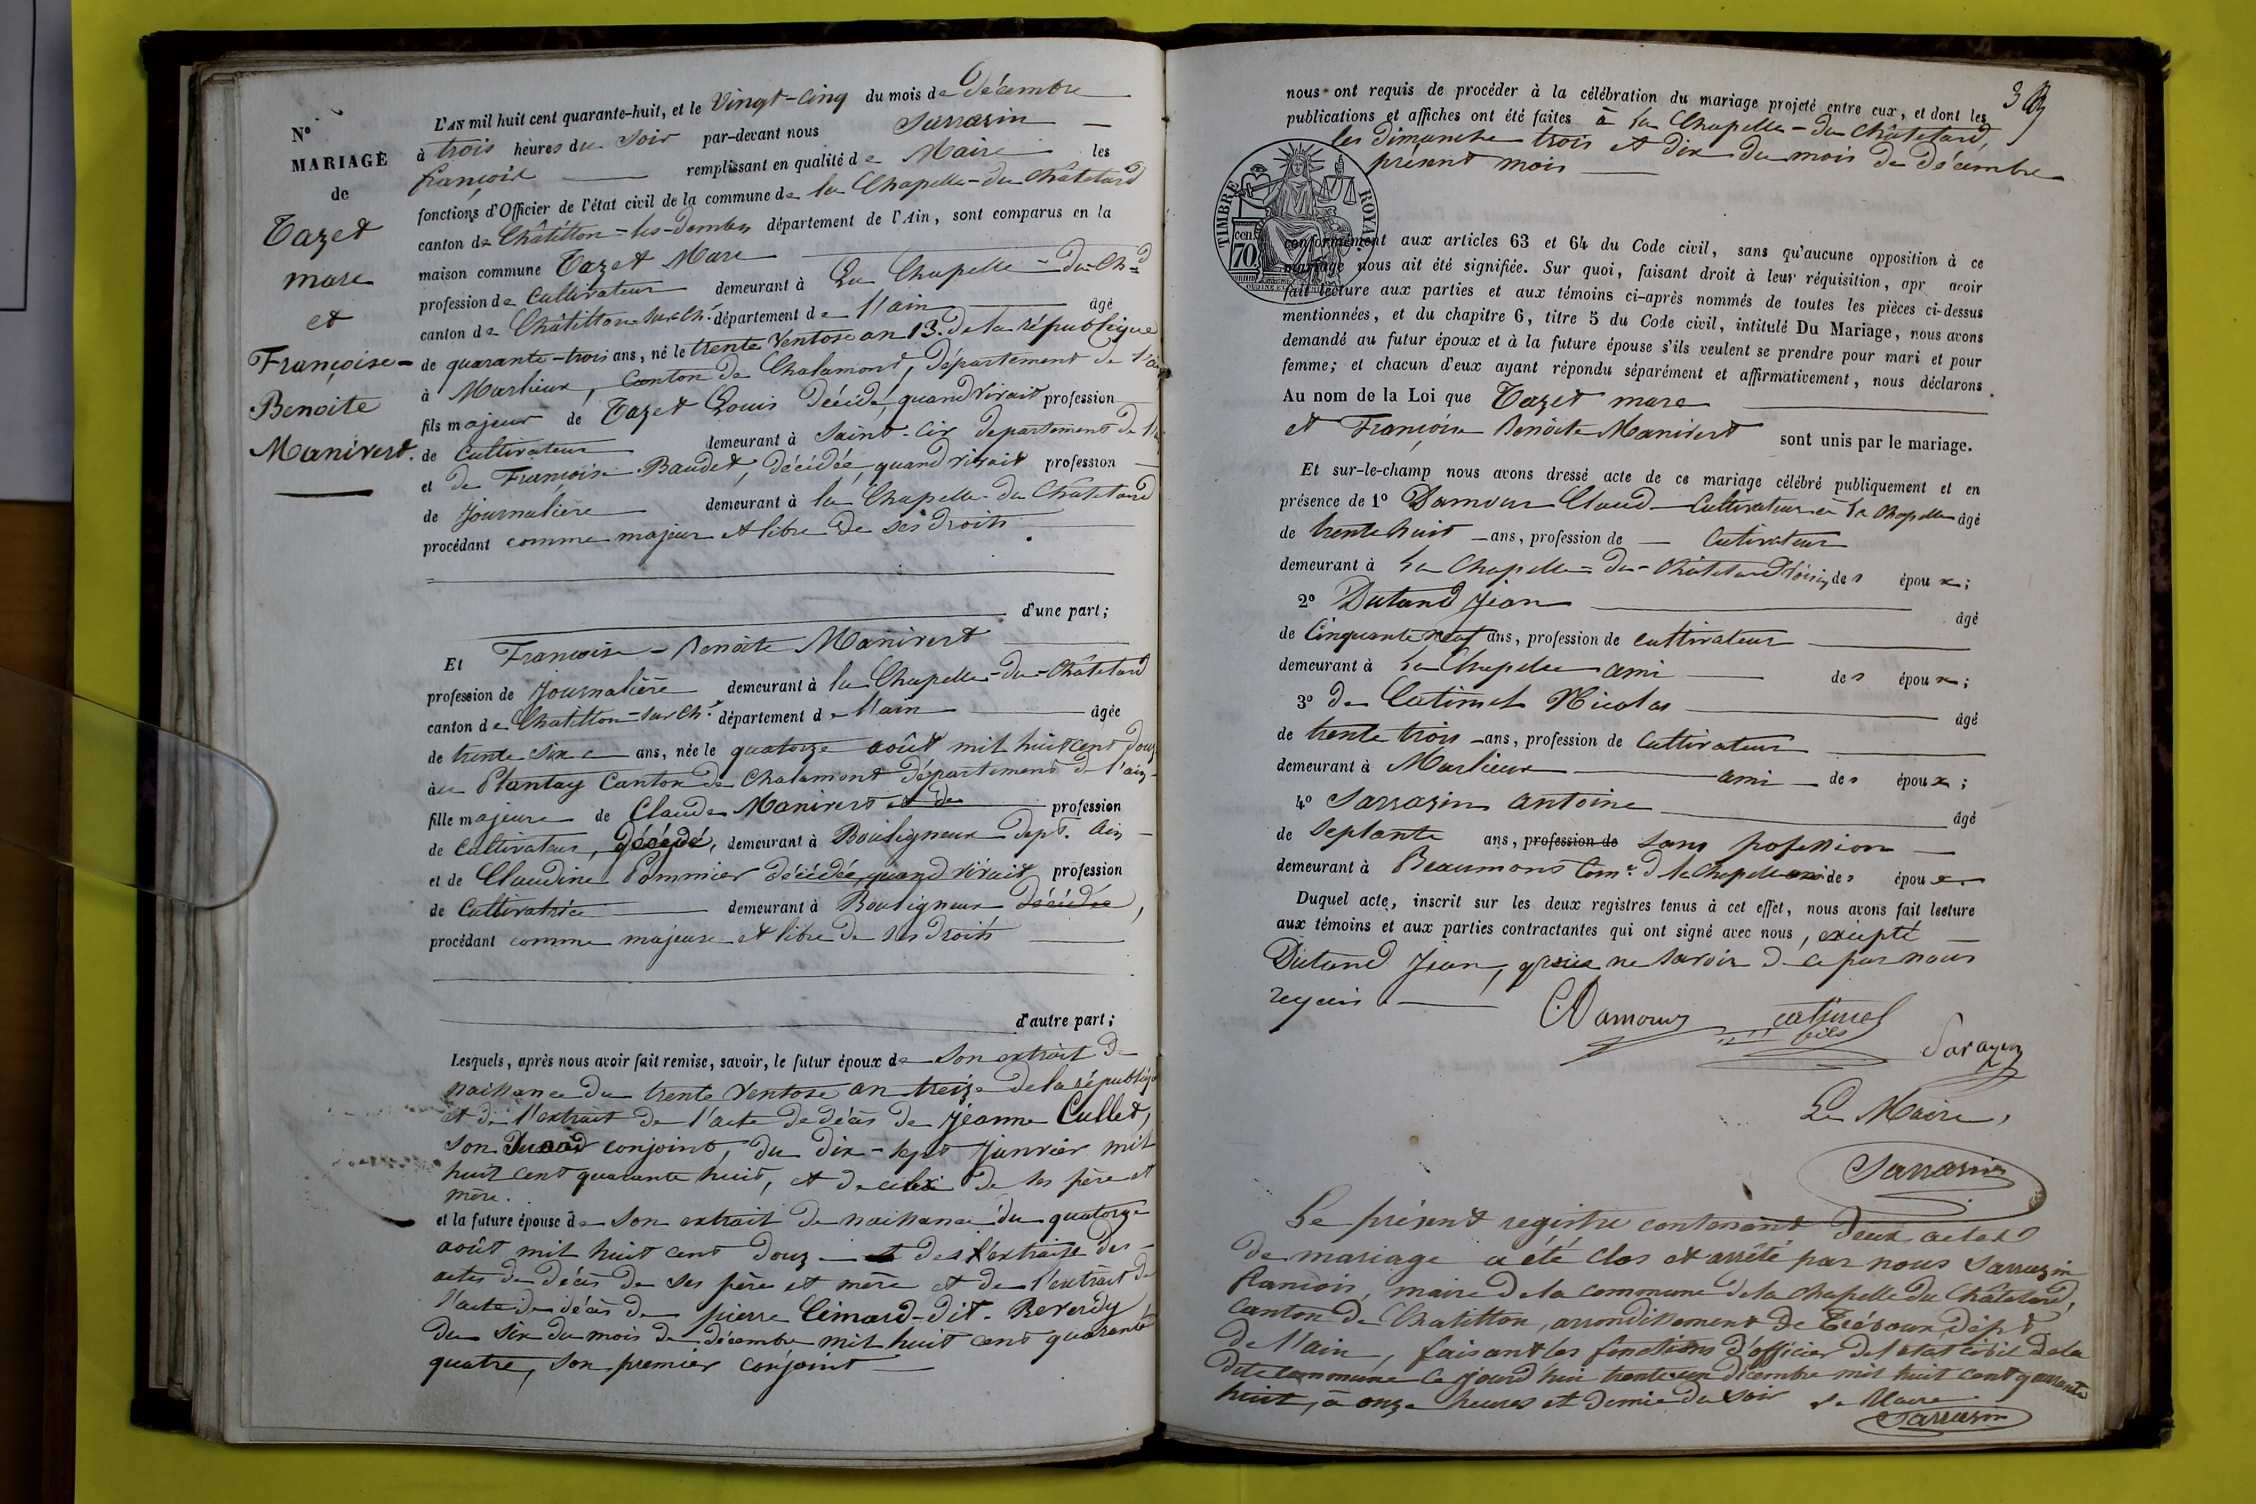 N°
MARIAGE
de
Tazet
marc
et
Françoise-
Benoite
Manivert.
L'AN mil huit cent quarante-huit, et le Vingt-cinq du mois de Décembre
à trois heures du soir par-devant nous Sarrasin
françois remplissant en qualité de Maire les
fonctions d'Officier de l'état civil de la commune de la Chapelle-du Châtelard
canton de Châtillon-les-Dombes département de l'Ain, sont comparus en la
maison commune Tazet Marc
profession de Cultivateur demeurant à La Chapelle-du-Ch-d
canton de Châtillon-sur-Ch.e département de l'ain âgé
de quarante-trois ans, né le trente Ventose an 13. de la république
à Marlieux, Canton de Chalamont, Département de l'ain
fils majeur de Tazet Louis Décédé, quand vivait profession
de Cultivateur demeurant à Saint-Cir département de l'ain
et de Françoise Baudet, décédée, quand vivait profession
de Journalière demeurant à la Chapelle du Châtelard
procédant comme majeur et libre de ses droits
d'une part;
Et Françoise-Benoite Manivert
profession de Journalière demeurant à la Chapelle-du-Châtelard
canton de Chatillon-sur Ch.e département de l'ain âgée
de trente six ans, née le quatorze août mil huit cent douze
à u Plantay Canton de Chalamont département de l'ain
fille majeure de Claude Manivert et de profession
de Cultivateur, décédé, demeurant à Bouligneux Dept. Ain
et de Claudine Pommier décédée, quand vivait profession
de Cultivatrice demeurant à Bouligneux décédée,
procédant comme majeure et libre de ses droits
d'autre part;
Lesquels, après nous avoir fait remise, savoir, le futur époux de Son extrait de
naissance du trente Ventose an treize de la république
et de l'extrait de l'acte de décès de Jeanne Cullet,
son conjoint, du dix-sept Janvier mil
huit cent quarante huit, et de celui de ses père et
mère.
et la future épouse de son extrait de naissance du quatorze
août mil huit cent douze et des l'extraits des
actes de décès de ses père et mère et de l'extrait de
l'acte de décès de pierre Cimard-dit-Reverdy
du six du mois de décembre mil huit cent quarante
quatre, son premier conjoint
3
nous ont requis de procéder à la célébration du mariage projeté entre eux, et dont les
publications et affiches ont été faites à la Chapelle-du Châtelard,
les dimanche trois et dix du mois de Décembre
présent mois
TIMBRE ROYAL
cen.
70
conformément aux articles 63 et 64 du Code civil, sans qu'aucune opposition à ce
mariage nous ait été signifiée. Sur quoi, faisant droit à leur réquisition, apr avoir
fait lecture aux parties et aux témoins ci-après nommés de toutes les pièces ci-dessus
mentionnées, et du chapitre 6, titre 5 du Code civil, intitulé Du Mariage, nous avons
demandé au futur époux et à la future épouse s'ils veulent se prendre pour mari et pour
femme; et chacun d'eux ayant répondu séparément et affirmativement, nous déclarons
Au nom de la Loi que Tazet marc
et Françoise Benoite Manivert sont unis par le mariage.
Et sur-le-champ nous avons dressé acte de ce mariage célébré publiquement et en
présence de 1° Damour Claud Cultivateur à la Chapelle âgé
de trente huit ans, profession de Cultivateur
demeurant à La Chapelle-du-Châtelard Voisin des époux;
2° Dutand Jean âgé
de Cinquante neuf ans, profession de cultivateur
demeurant à La Chapelle ami des époux;
3° de Catimel Nicolas âgé
de trente trois ans, profession de Cultivateur
demeurant à Marlieux ami des époux;
4° Sarrazin Antoine âgé
de Septante ans, profession de sans profession
demeurant à Beaumont Com.e de la Chapelle ami des époux.
Duquel acte, inscrit sur les deux registres tenus à cet effet, nous avons fait lecture
aux témoins et aux parties contractantes qui ont signé avec nous, excepté
Dutand Jean, ne savoir de ce par nous
requis.
C. Damour Catimel
fils
Sarazin
Le Maire,
Sarrasin
Le présent registre contenant deux actes
de mariage a été clos et arrêté par nous Sarrazin
françois, maire de la commune de la chapelle du Châtelard,
Canton de Chatillon, arrondissement de Trévoux, dépt
de l'ain, faisant les fonctions d'officier de l'état civil de la
dite commune ce jourd'hui trente un décembre mil huit cent quarante
huit, à onze heures et demie du soir Le Maire
Sarrasin